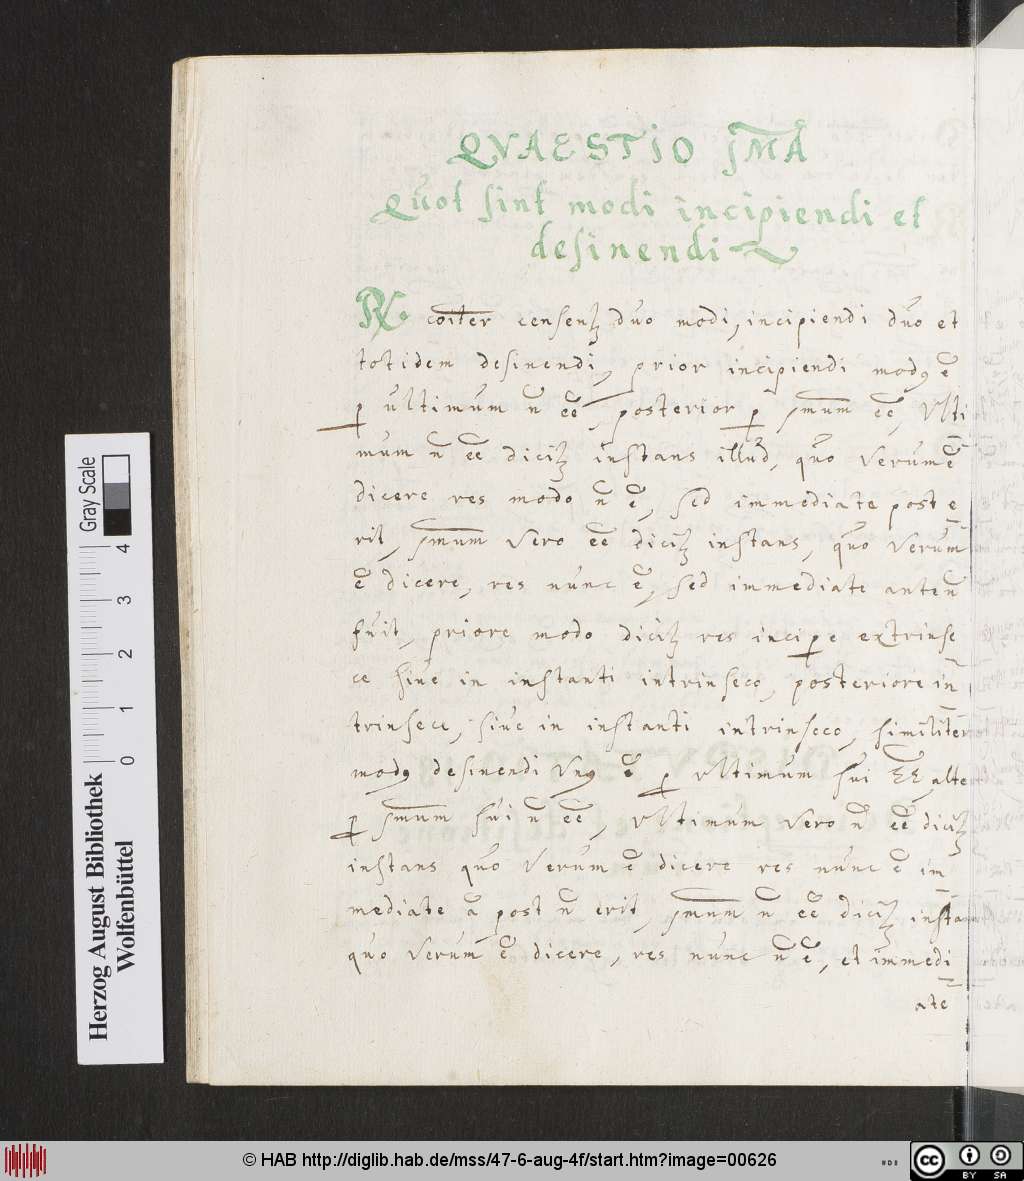 QVAESTIO JMA
Quot sint modi incipiendi et
desinendi
R. coiter censentz duo modi, incipiendi duo et
totidem desinendi, prior incipiendi modꝰ ē
ꝑ ultimum ñ eē, posterior ꝑ pmum eē, Ulti
mum ñ eē dicitz instans illud, quo verum ē
dicere res modo ñ ē, sed immediate post e
rit, pmum vero eē dicitz instans, quo verum
ē dicere, res nunc ē, sed immediate ante ñ
fuit, priore modo dicitz res inciꝑe extrinse
ce sive in instanti intrinseco, posteriore in
trinsece, sive in instanti intrinseco, similiter
modꝰ desinendi Unꝰ ē ꝑ ultimum sui EE, alte
ꝑ pmum sui ñ eē, ultimum vero ñ eē dicitz
instans quo verum ē dicere res nunc ē im
mediate ā post ñ erit, pmum ñ eē dicitz instans
quo verum ē dicere, res nunc ñ ē, et immedi
ate
Herzog August Bibliothek
Wolfenbüttel
0 1 2 3 4
Gray Scale
© HAB http://diglib.hab.de/mss/47-6-aug-4f/start.htm?image=00626
cc BY SA